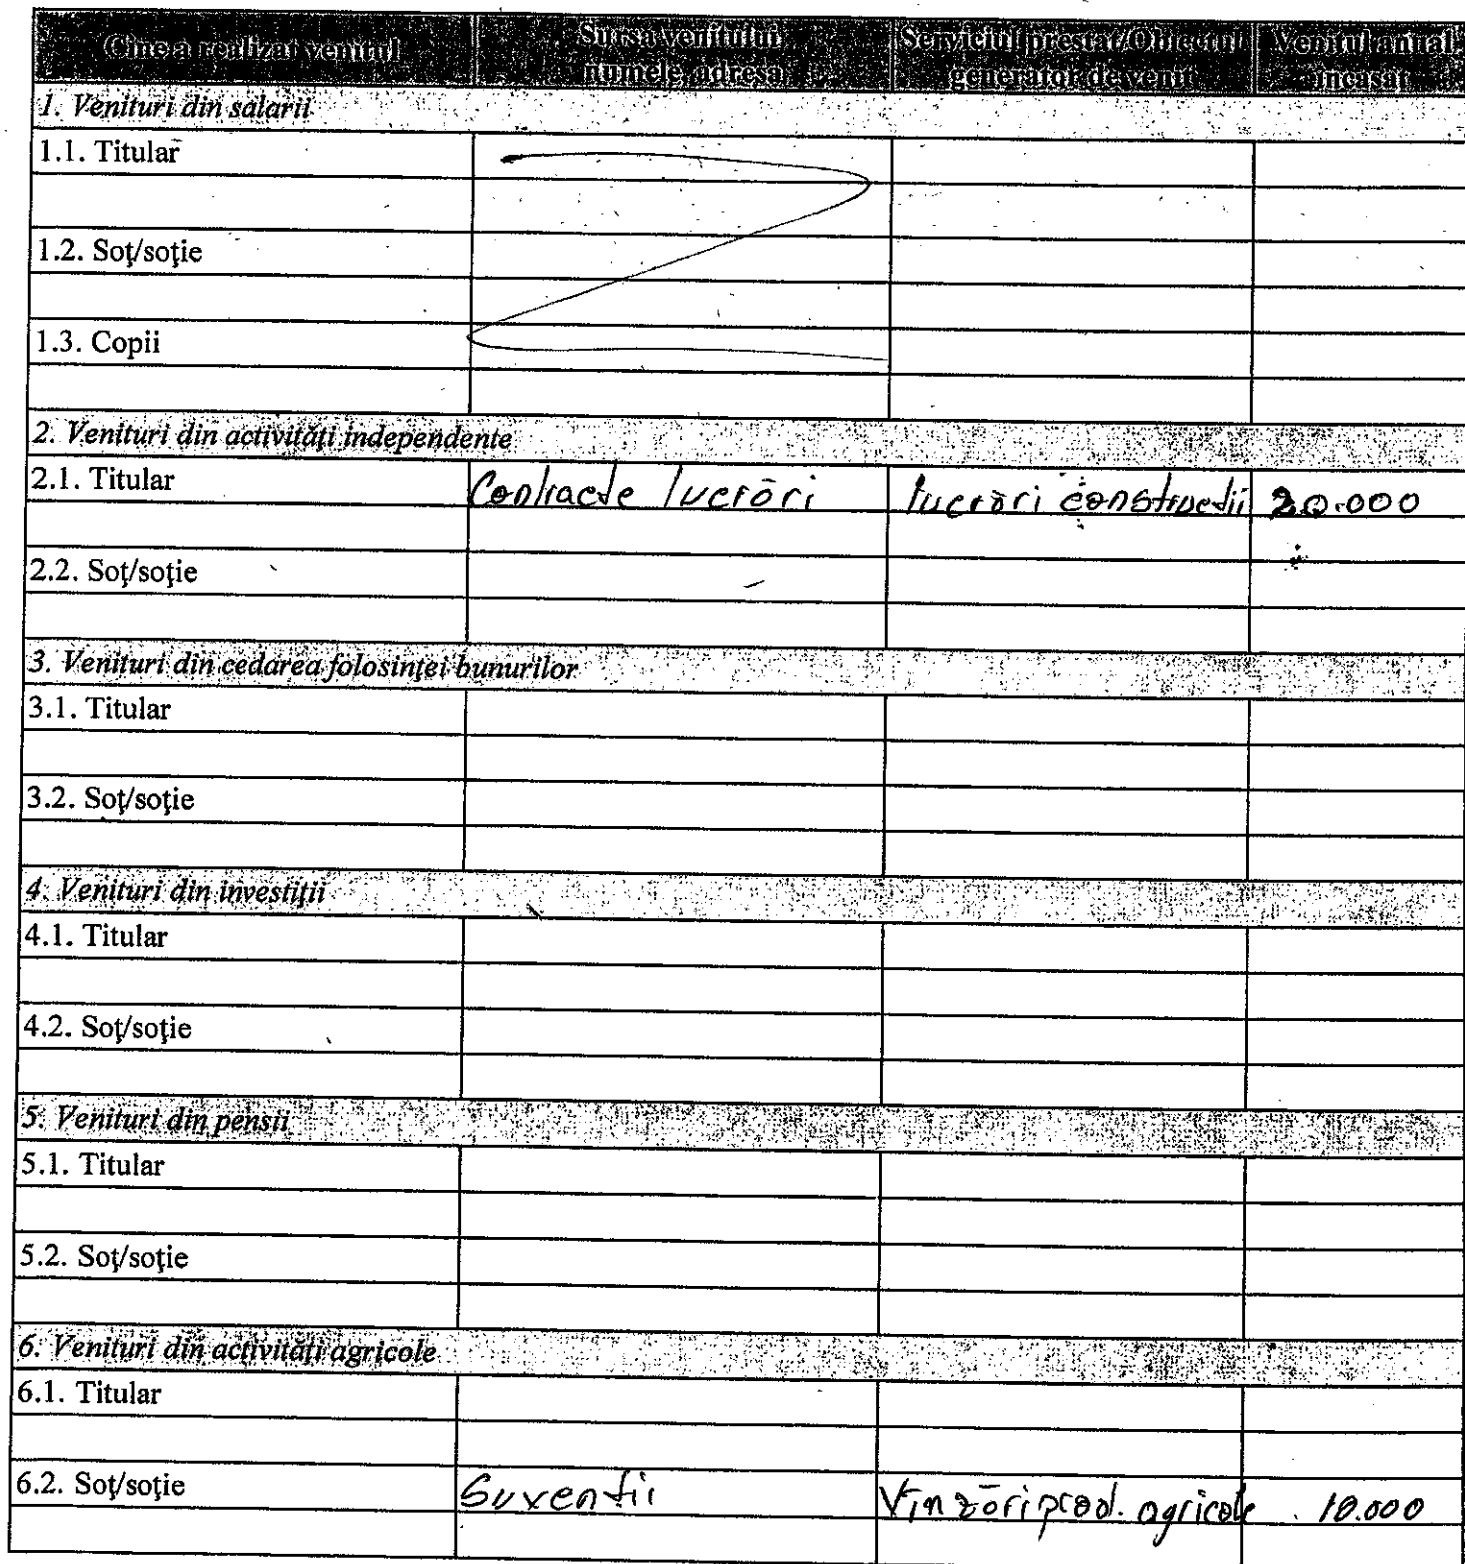 Cine a realizat venitul | Sursa venitului numele, adresa | Serviciul prestat/Obiectul generator de venit | Venitul anual încasat
1. Venituri din salarii
1.1. Titular
1.2. Soţ/soţie
1.3. Copii
2. Venituri din activităţi independente
2.1. Titular | Contracte lucrări | lucrări construcţii | 20.000
2.2. Soţ/soţie | -
3. Venituri din cedarea folosinţei bunurilor
3.1. Titular
3.2. Soţ/soţie
4. Venituri din investiţii
4.1. Titular
4.2. Soţ/soţie
5. Venituri din pensii
5.1. Titular
5.2. Soţ/soţie
6. Venituri din activităţi agricole
6.1. Titular
6.2. Soţ/soţie | Suvenţii | Vînzări prod. agricole | 10.000